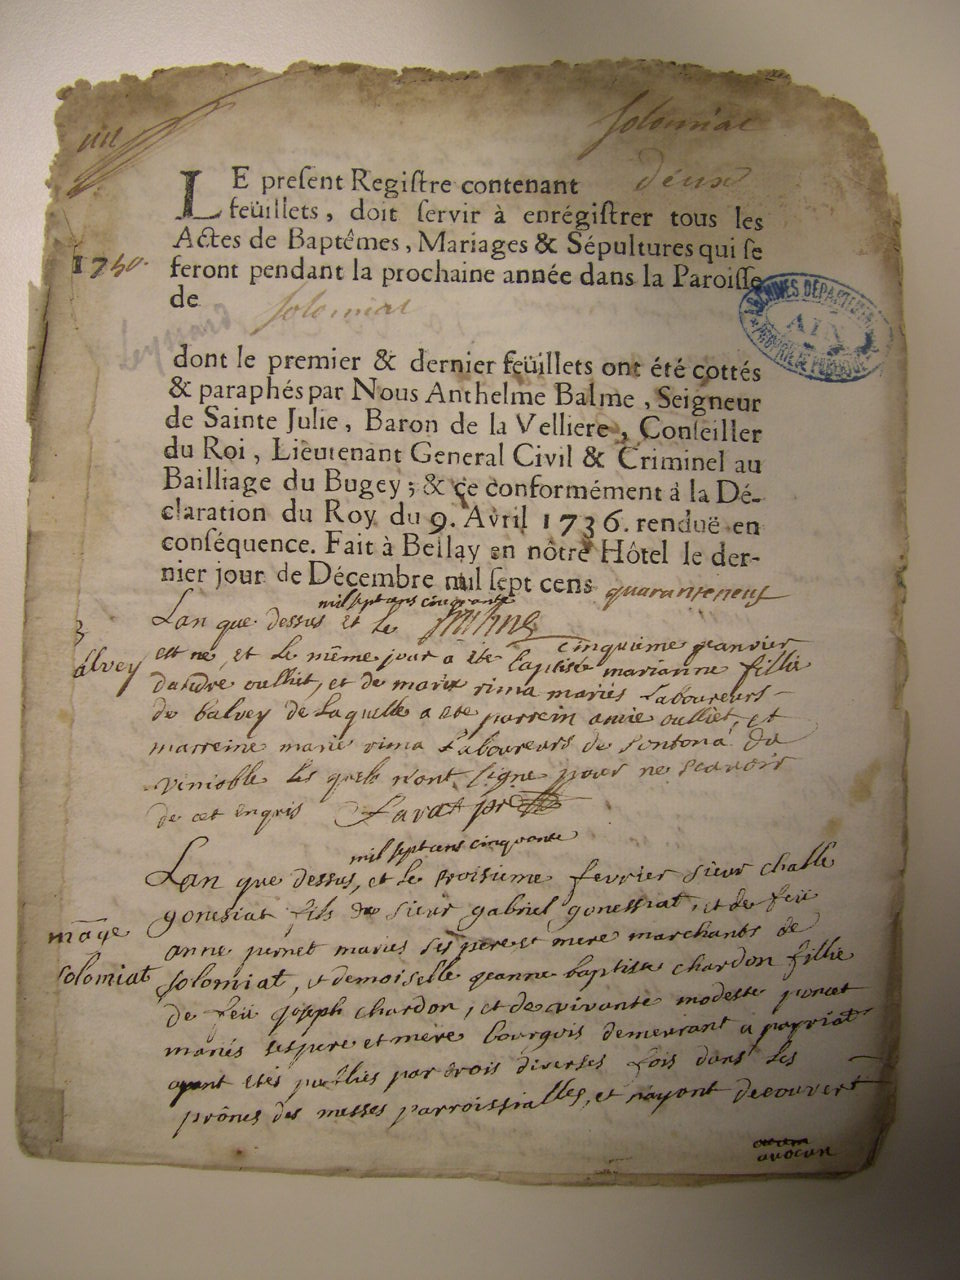 solomiat
LE preſent Regiſtre contenant deux
feüillets, doit ſervir à enrégiſtrer tous les
Actes de Baptêmes, Mariages & Sépultures qui ſe
1750.
feront pendant la prochaine année dans la Paroiſſe
de solomiat
Leyssard
ARCHIVES DÉPARTEMENTALES
AIN
dont le premier & dernier feüillets ont été cottés
& paraphés par Nous Anthelme Balme, Seigneur
de Sainte Julie, Baron de la Velliere, Conſeiller
du Roi, Lieutenant General Civil & Criminel au
Bailliage du Bugey; & çe conformément à la Dé-
claration du Roy du 9. Avril 1736. renduë en
conſéquence. Fait à Bellay en nôtre Hôtel le der-
nier jour de Décembre mil ſept cens quaranteneuf
mil sept cens cinquante
Lan que dessus et le cinquieme jeanvier
est né, et le même jour a été baptisé marianne fillie
balvey
oulliet, et de marie rima mariés Laboureurs
de balvey de Laquelle a été parrein oulliet, et
marreine marie rima Laboureurs de du
vinioble les quels n'ont signe pour ne scavoir
de cet enquis favat
mil sept cens cinquante
Lan que dessus, et le troisieme fevrier sieur
gonessiat fils de sieur gabriel gonessiat, et de feü
mage
anne pernet mariés ses pere et mere marchants de
solomiat
solomiat, et demoiselle jeanne baptiste chardon fillie
de feü joseph chardon, et de vivante modeste poncet
mariés ses pere et mere bourgois demeurant a
ayant etés publiés par trois diverses fois dans les
prônes des messes parroissialles, et n'ayant decouvert
aucun